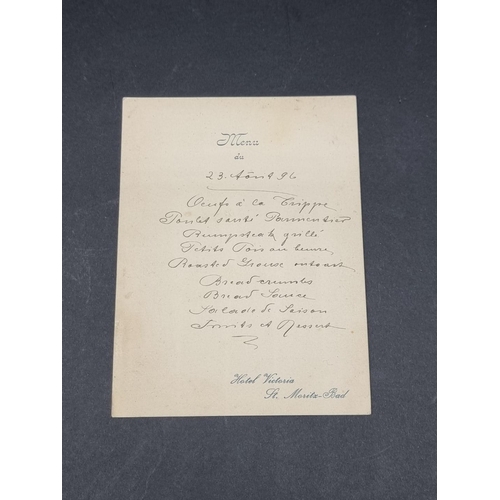 Menu
du
23. Août 96
Oeufs à la Trippe
Poulet sauté Parmentier
Rumpsteak grillé
Petits Pois au beurre
Roasted Grouse
Bread crumbs
Bread Sauce
Salade de Saison
Fruits et Dessert
Hotel Victoria
St. Moritz-Bad